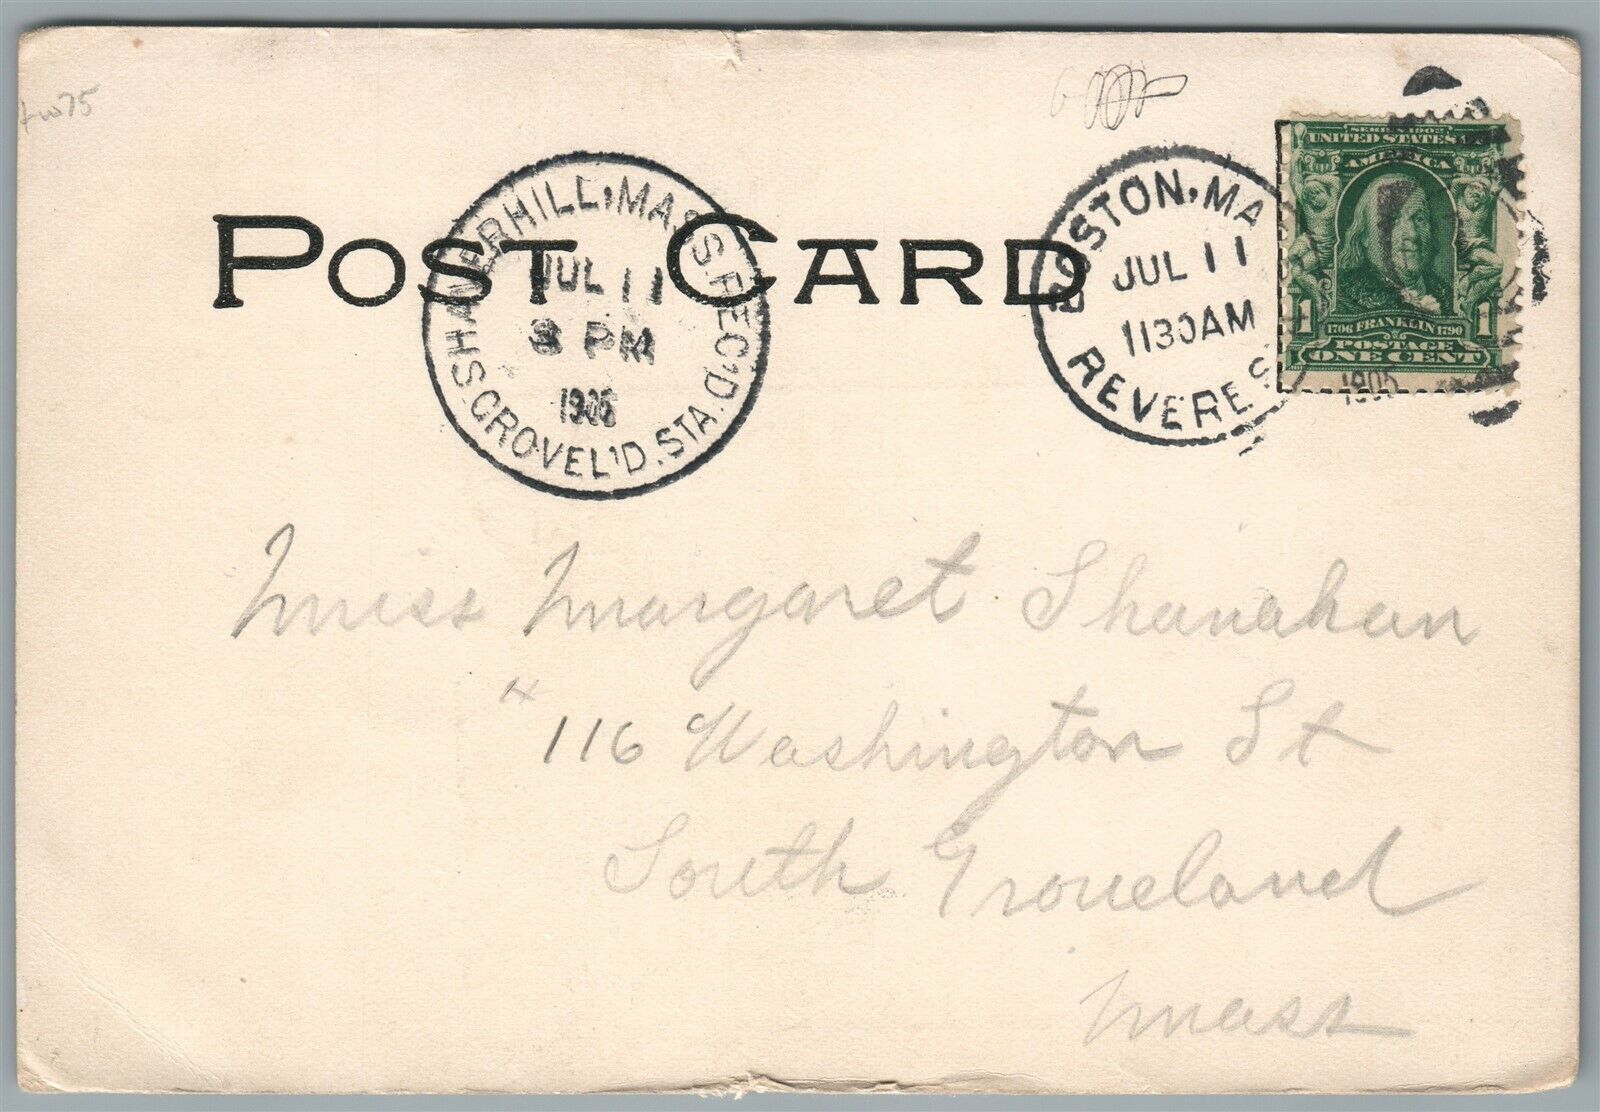 POST CARD
HAVERHILL, MASS. REC'D.
JUL 11
3 PM
1905
S. GROVEL'D. STA.
BOSTON, MA
JUL 11
1130AM
1905
REVERE S
SERIES 1902
UNITED STATES
AMERICA
1 1706 FRANKLIN 1790 1
POSTAGE
ONE CENT
Miss Margaret Shanahan
116 Washington St
South Groveland
Mass